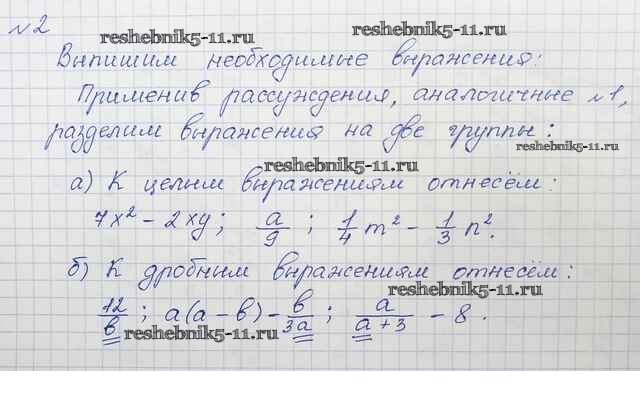 №2
reshebnik5-11.ru
reshebnik5-11.ru
Выпишим необходимые выражения:
Применив рассуждения, аналогичные №1,
разделим выражения на две группы:
reshebnik5-11.ru
reshebnik5-11.ru
а) К целым выражениям отнесём:
7x² - 2xy; a/9; 1/4 m² - 1/3 n².
б) К дробным выражениям отнесём:
reshebnik5-11.ru
12/b; a(a - b) - b/3a; a/a+3 - 8.
reshebnik5-11.ru